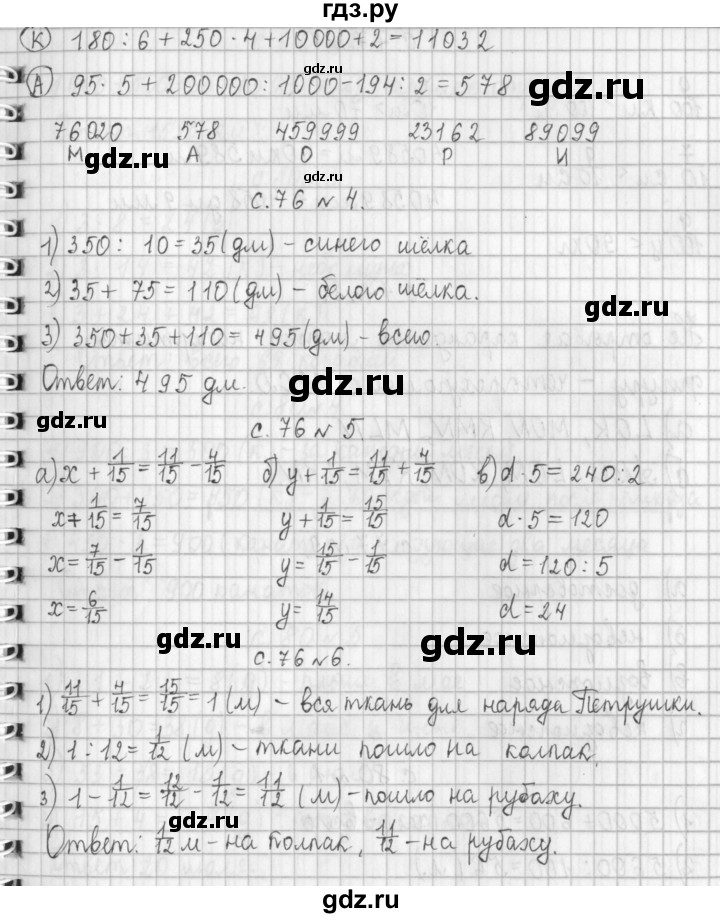 гдз.ру
К) 180 : 6 + 250 · 4 + 10000 + 2 = 11032
gdz.ru
А) 95 · 5 + 200000 : 1000 - 194 : 2 = 578
gdz.ru
76020 578 459999 23162 89099
М А О Р И
gdz.ru gdz.ru
с. 76 № 4.
gdz.ru
1) 350 : 10 = 35 (дм) - синего шёлка
2) 35 + 75 = 110 (дм) - белого шёлка.
gdz.ru
3) 350 + 35 + 110 = 495 (дм) - всего
Ответ: 495 дм.
gdz.ru
с. 76 № 5.
gdz.ru
а) x + 1/15 = 11/15 - 4/15 б) y + 1/15 = 11/15 + 4/15 в) d · 5 = 240 : 2
x + 1/15 = 7/15 y + 1/15 = 15/15 d · 5 = 120
x = 7/15 - 1/15 y = 15/15 - 1/15 d = 120 : 5
x = 6/15 y = 14/15 d = 24
gdz.ru gdz.ru
с. 76 № 6.
gdz.ru
1) 11/15 + 4/15 = 15/15 = 1 (м) - вся ткань для наряда Петрушки.
2) 1 : 12 = 1/12 (м) - ткани пошло на колпак.
gdz.ru
3) 1 - 1/12 = 12/12 - 1/12 = 11/12 (м) - пошло на рубаху.
gdz.ru gdz.ru
Ответ: 1/12 м - на колпак, 11/12 - на рубаху.
gdz.ru